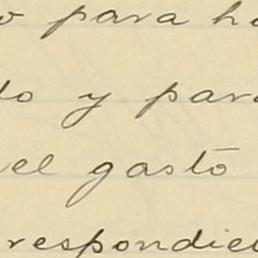 o para ha
do y para
el gasto
respondien